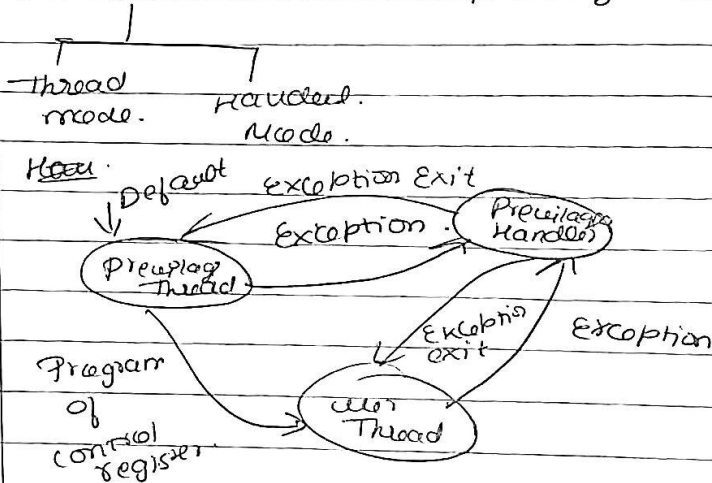 Thread
mode.
Handler.
Mode.
Default
Exception Exit
Exception.
Previlaged
Handler
Previlag
Thread
Exception
exit
Exception
Program
of
control
register.
User
Thread